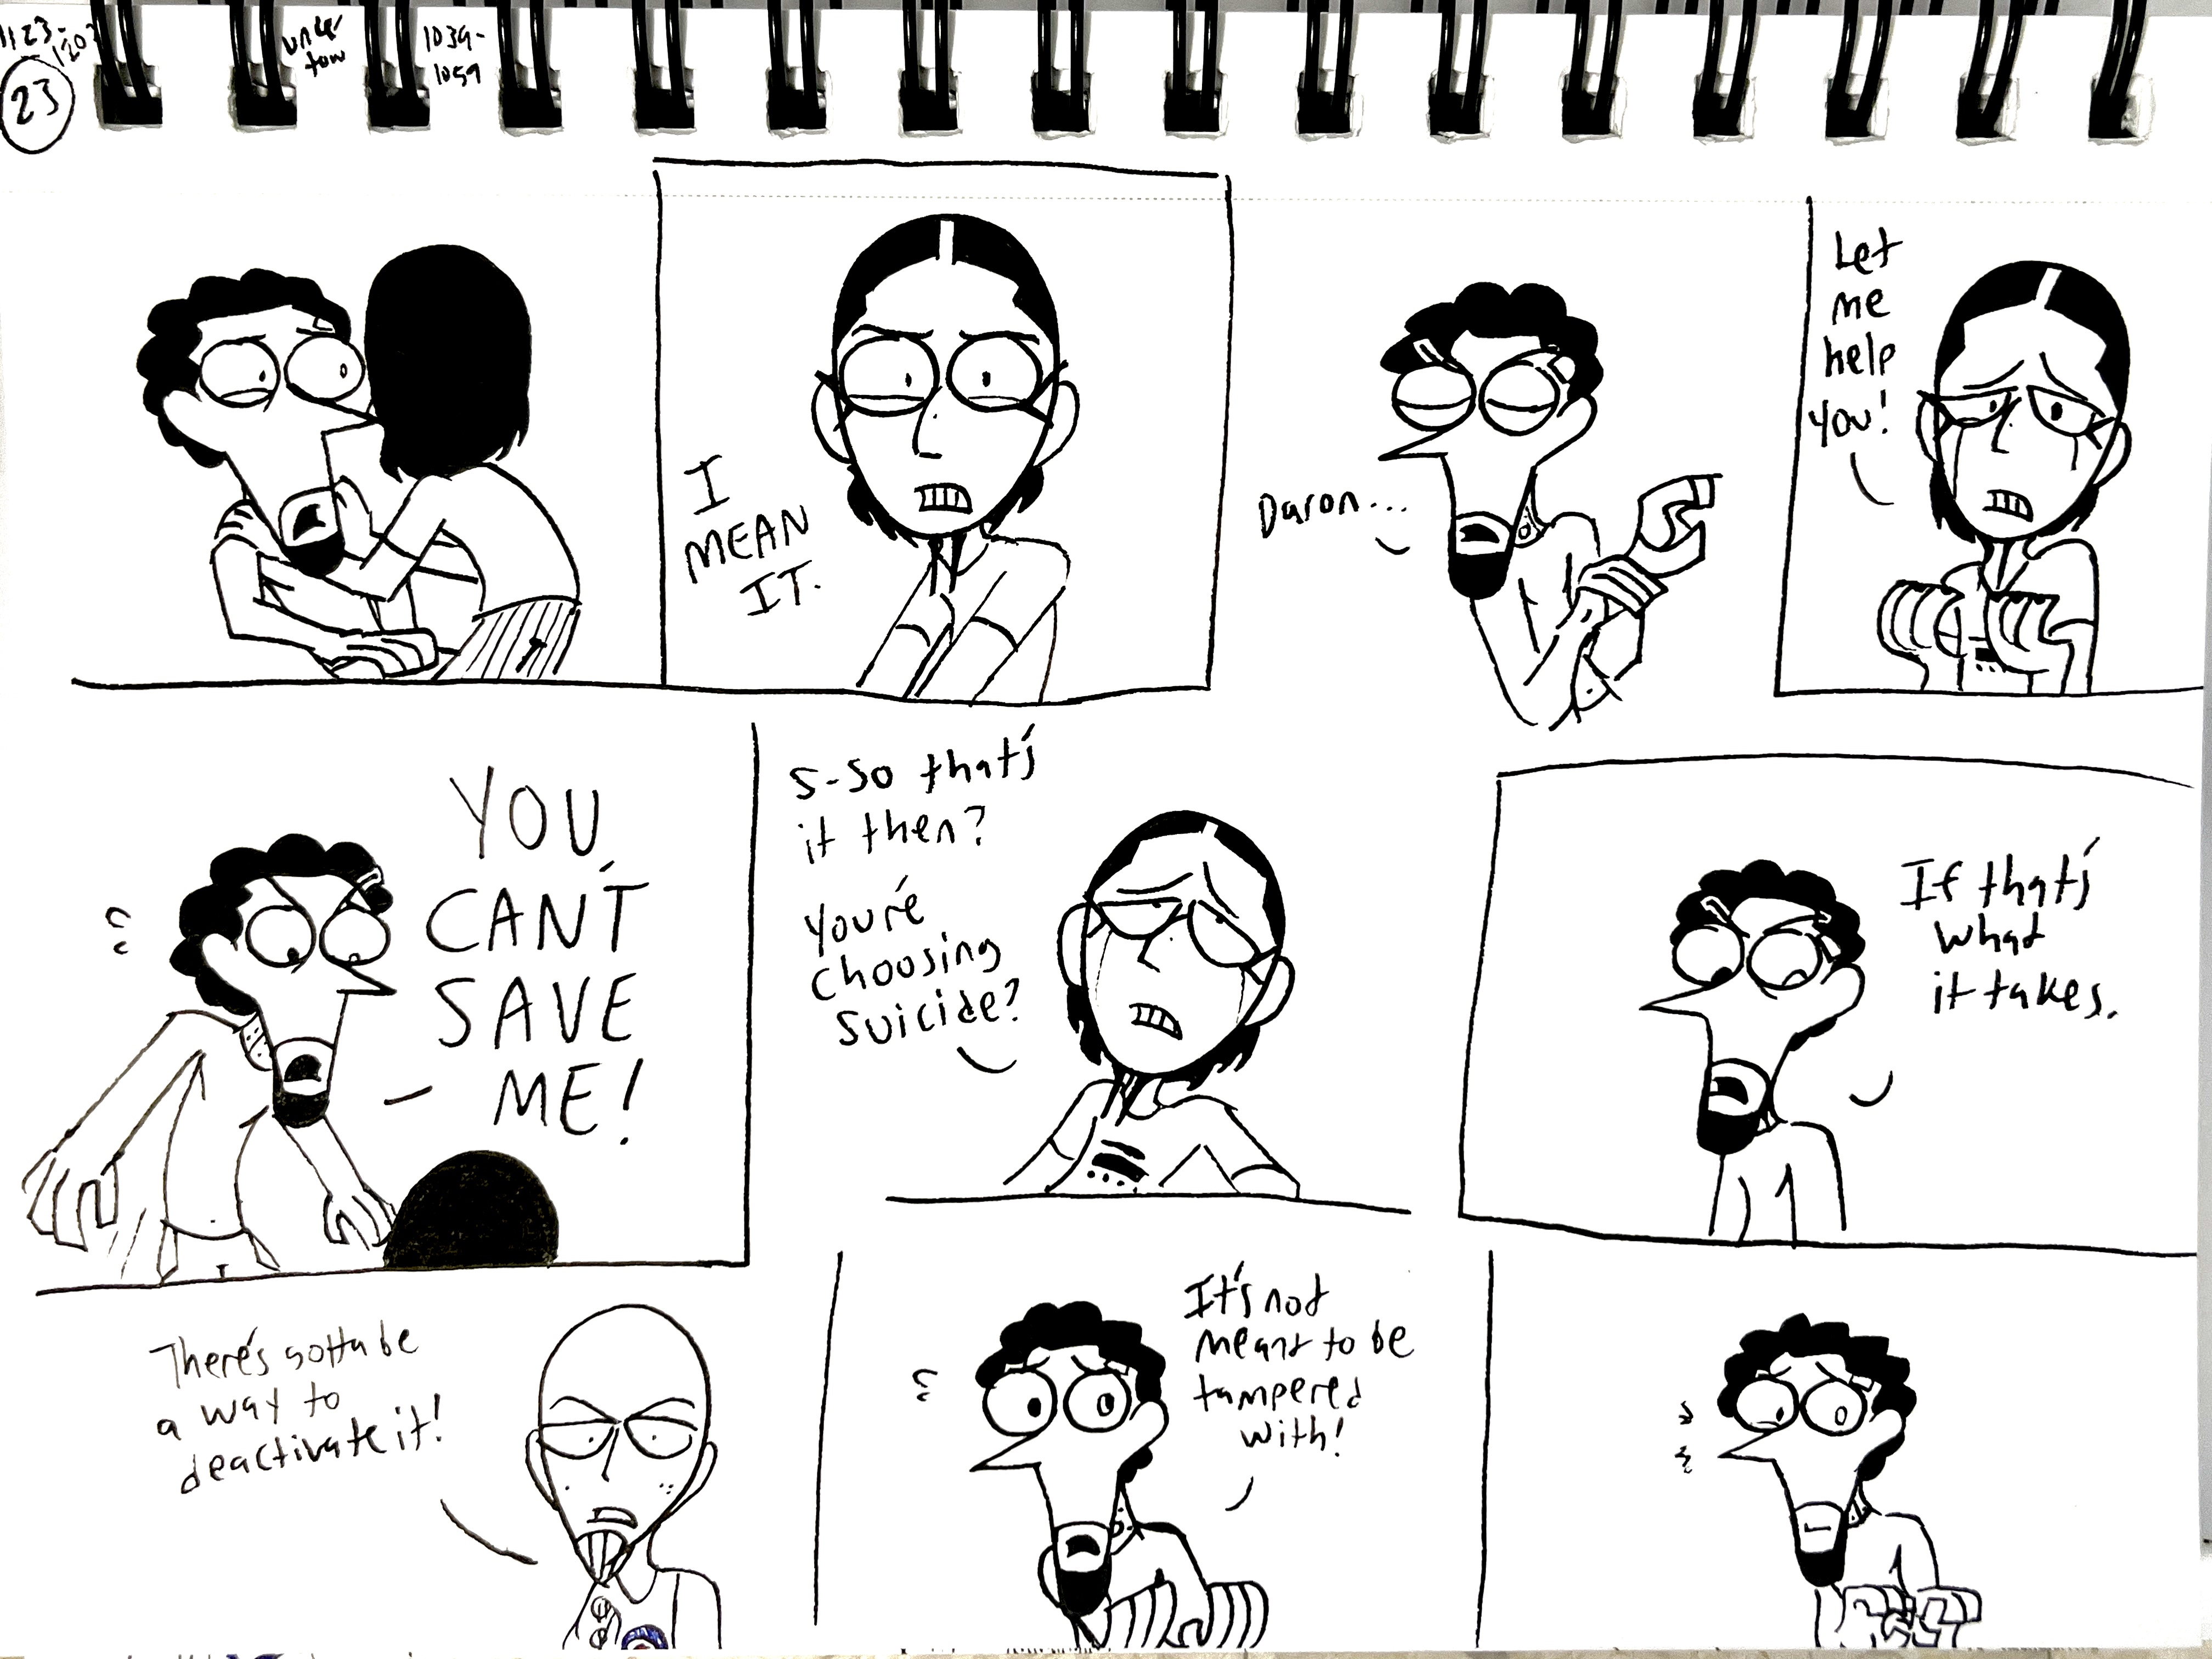 1123-
1203
23
under
tow
1039-
1059
I
MEAN
IT.
Daron...
Let
me
help
you!
YOU
CAN'T
SAVE
ME!
S-so that's
it then?
You're
choosing
suicide?
If that's
what
it takes.
There's gotta be
a way to
deactivate it!
It's not
meant to be
tampered
with!